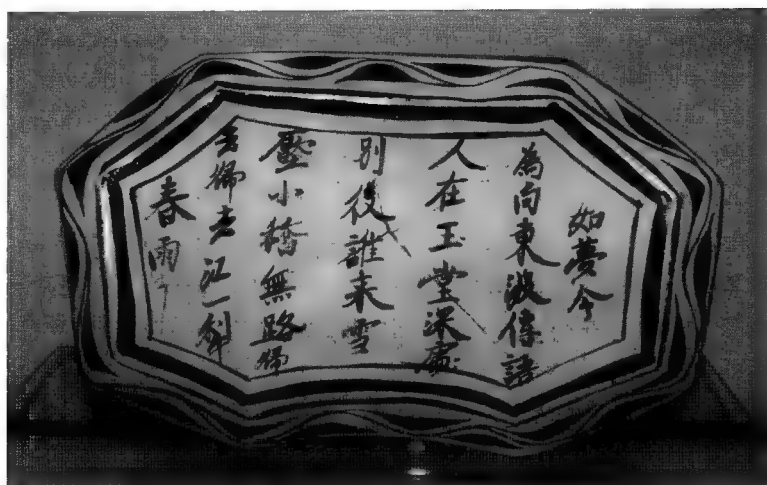 如夢今
為向東波傳語
人在玉堂深處
別後誰来雪
壓小橋無路歸
去歸去江一犁
春雨